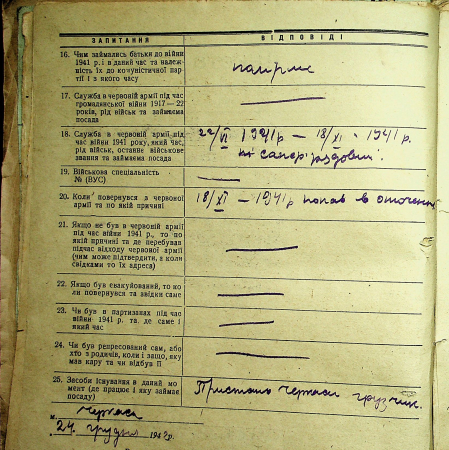 ЗАПИТАННЯ
ВІДПОВІДІ
16. Чим займались батьки до війни
1941 р. і в даний час та належ-
ність їх до комуністичної пар-
тії і з якого часу
померли
17. Служба в червоній армії під час
громадянської війни 1917—22
років, рід військ та займаєма
посада
18. Служба в червоній армії під
час війни 1941 року, який час,
рід військ, останнє військове
звання та займаєма посада
22/VI 1941 р — 18/XI - 1941 р.
сапер рядовий.
19. Військова спеціальність
№ (ВУС)
20. Коли повернувся в червоної
армії та по якій причині
18/XI — 1941 р попав в оточення
21. Якщо не був в червоній армії
під час війни 1941 р., то по
якій причині та де перебував
підчас відходу червоної армії
(чим може підтвердити, а коли
свідками то їх адреса)
22. Якщо був евакуйований, то ко-
ли повернувся та звідки саме
23. Чи був в партизанах під час
війни 1941 р. та де саме і
який час
24. Чи був репресований сам, або
хто з родичів, коли і защо, яку
мав кару та чи відбув її
25. Засоби існування в даний мо-
мент (де працює і яку займає
посаду)
Пристань Черкаси грузчик.
м. Черкаси
24 грудня 194 р.